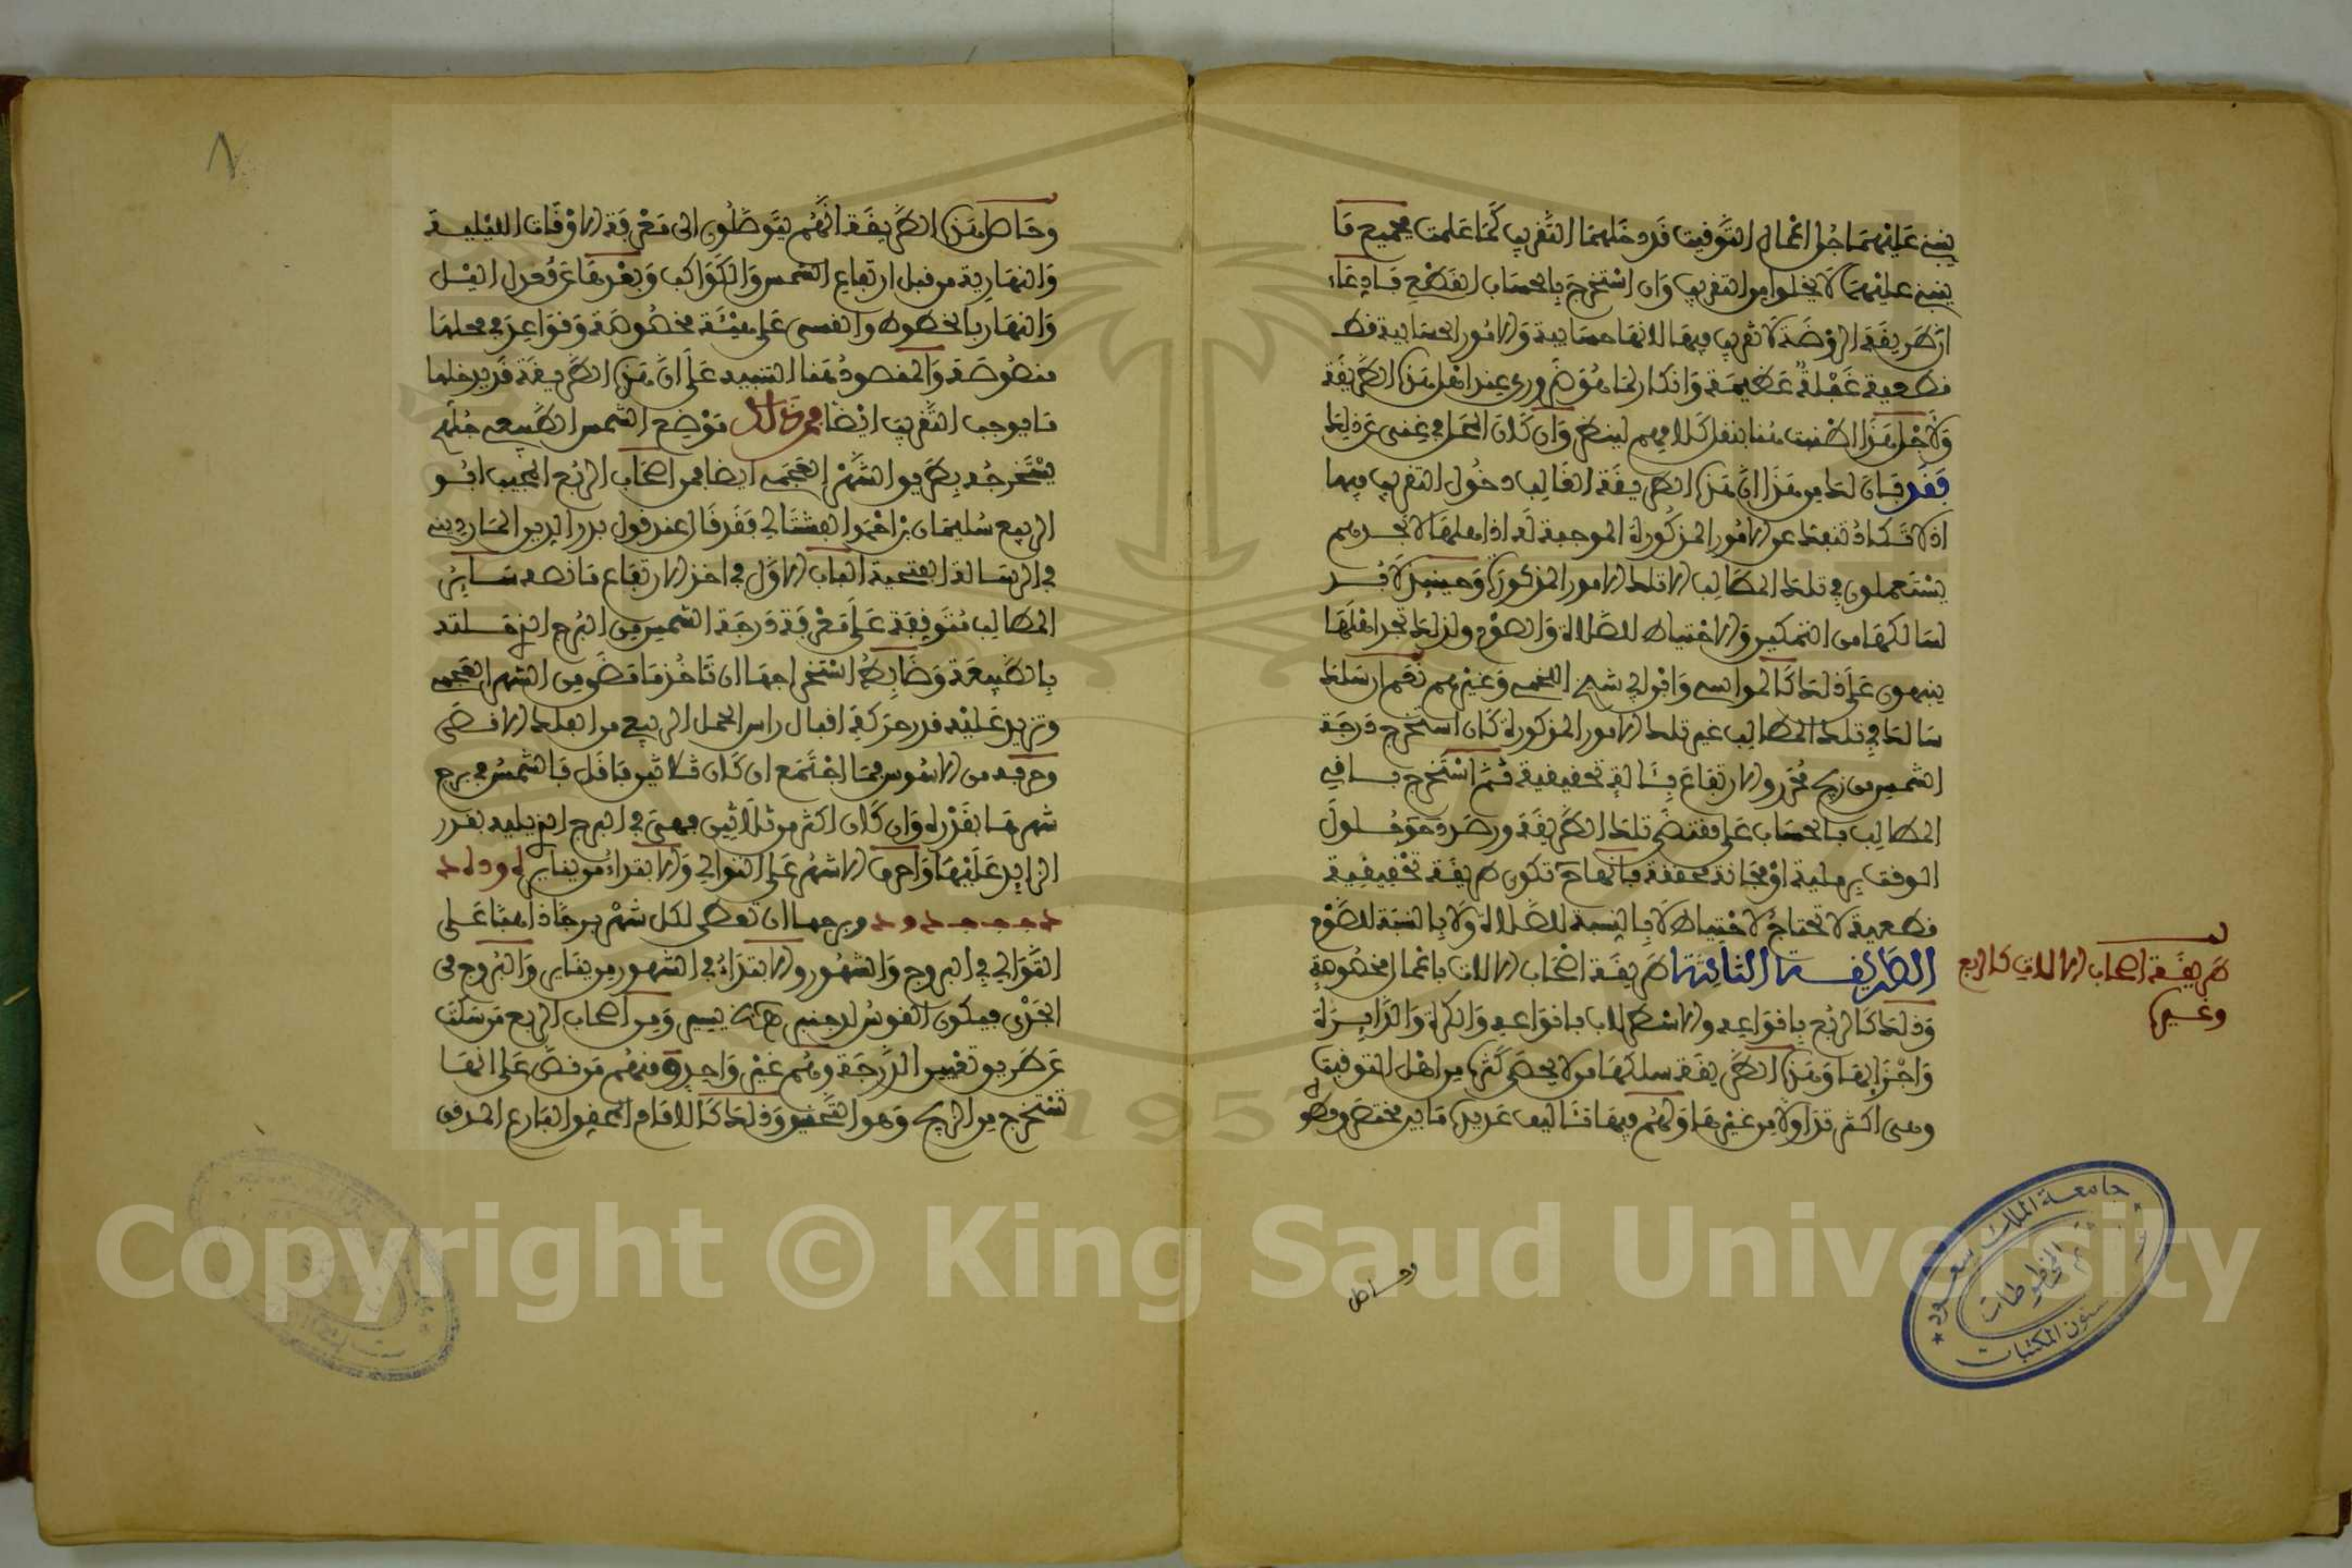 ينبني عليهما جل اعمال التوقيت قد دخلهما التقريب كما علمت فجميع ما
ينبني عليهما لا يخلوا من التقريب وان استخرج بالحساب القطعي فادعاء
ان طريقة الروضة لا تقريب فيها لانها حسابية والامور الحسابية قط
قطعية غفلة عظيمة وانكار لما هو ضروري عند اهل هذه الطريقة
ولاجل هذا اطنبت هنا بنقل كلامهم لينظر وان كان المحل في غنى عن ذلك
فقد بان لك من هذا ان هذه الطريقة الغالب دخول التقريب فيها
اذ لا تكاد تنفك عن الامور المذكورة الموجبة له اذ اهلها لا تجدهم
يستعملون في تلك المطالب الا تلك الامور المذكورة وحينئذ لا بد
لسالكها من التمكين والاحتياط للصلاة والصوم ولذلك تجد اهلها
ينبهون على ذلك كالمواسي وافولي شيخ اللخمي وغيرهم نعم ان سلك
سالك في تلك المطالب غير تلك الامور المذكورة كان استخرج درجة
الشمس من زيج محرر والارتفاع بئالة تحقيقية ثم استخرج باقي
المطالب بالحساب على مقتضى تلك الطريقة ورصد دخول
الوقت برملية او مجانة محققة فانها تكون طريقة تحقيقية
قطعية لا تحتاج لاحتياط لا بالنسبة للصلاة ولا بالنسبة للصوم
الطريقة الثانية طريقة اصحاب الالات باعمال مخصوصة
وذلك كالربع بقواعده والاسطرلاب بقواعده والكرة والدائرة
واجزائها وهذه الطريقة سلكها من لا يحصى كثرة من اهل التوقيت
وهي اكثر تداولا من غيرها ولهم فيها تئاليف عديدة ما بين مختصر ومطول
طريقة اصحاب الالات كالربع
وغيره
وحاصل
وحاصل هذه الطريقة انهم يتوصلون الى معرفة الاوقات الليلية
والنهارية من قبل ارتفاع الشمس والكواكب وبعدها عن فحول الليل
والنهار بالخطوط والقسي على هيئة مخصوصة وقواعد في محلها
منصوصة والمقصود هنا التنبيه على ان هذه الطريقة قد يدخلها
ما يوجب التقريب ايضا فمن ذلك موضع الشمس الطبيعي جلهم
يستخرجه بطريق الشهر العجمي ايضا فمن اصحاب الربع المجيب ابو
الربيع سليمان بن احمد الفشتالي فقد قال عند قول بدر الدين المارديني
في الرسالة الفتحية الباب الاول في اخذ الارتفاع ما نصه سائر
المطالب متوقفة على معرفة درجة الشمس من البرج الذي حلته
بالطبيعة وضابط استخراجها ان تاخذ ما مضى من الشهر العجمي
وتزيد عليه قدر حركة اقبال راس الحمل الربيعي من الفلك الاقصى
وحرفه من الاسوس فما اجتمع ان كان ثلاثين فاقل فالشمس في برج
شهرها بقدره وان كان اكثر من ثلاثين فهي في البرج الذي يليه بقدر
الزايد عليها واحرف الاشهر على التوالي والابتداء من يناير
وبرجها ان تعطي لكل شهر برجا ذاهبا على
التوالي في البروج والشهور والابتداء في الشهور من يناير والبروج من
الجدي فيكون القوس لدجنبر ومن اصحاب الربع من سكت
عن طريق تعيين الدرجة وهم غير واحد ومنهم من نص على انها
تستخرج من الزيج وهو التحقيق وذلك كالامام المحقق البارع المدقق
جامعة الملك سعود
المخطوطات
شئون المكتبات
Copyright © King Saud University
1957